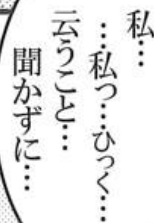 私…
…私っ…ひっく…
云うこと…
聞かずに…